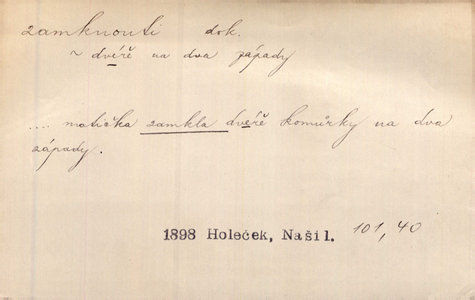 zamknouti dok.
~ dvíře na dva západy
.... matička zamkla dvéře komůrky na dva
západy.
1898 Holeček, Naši I. 101,40